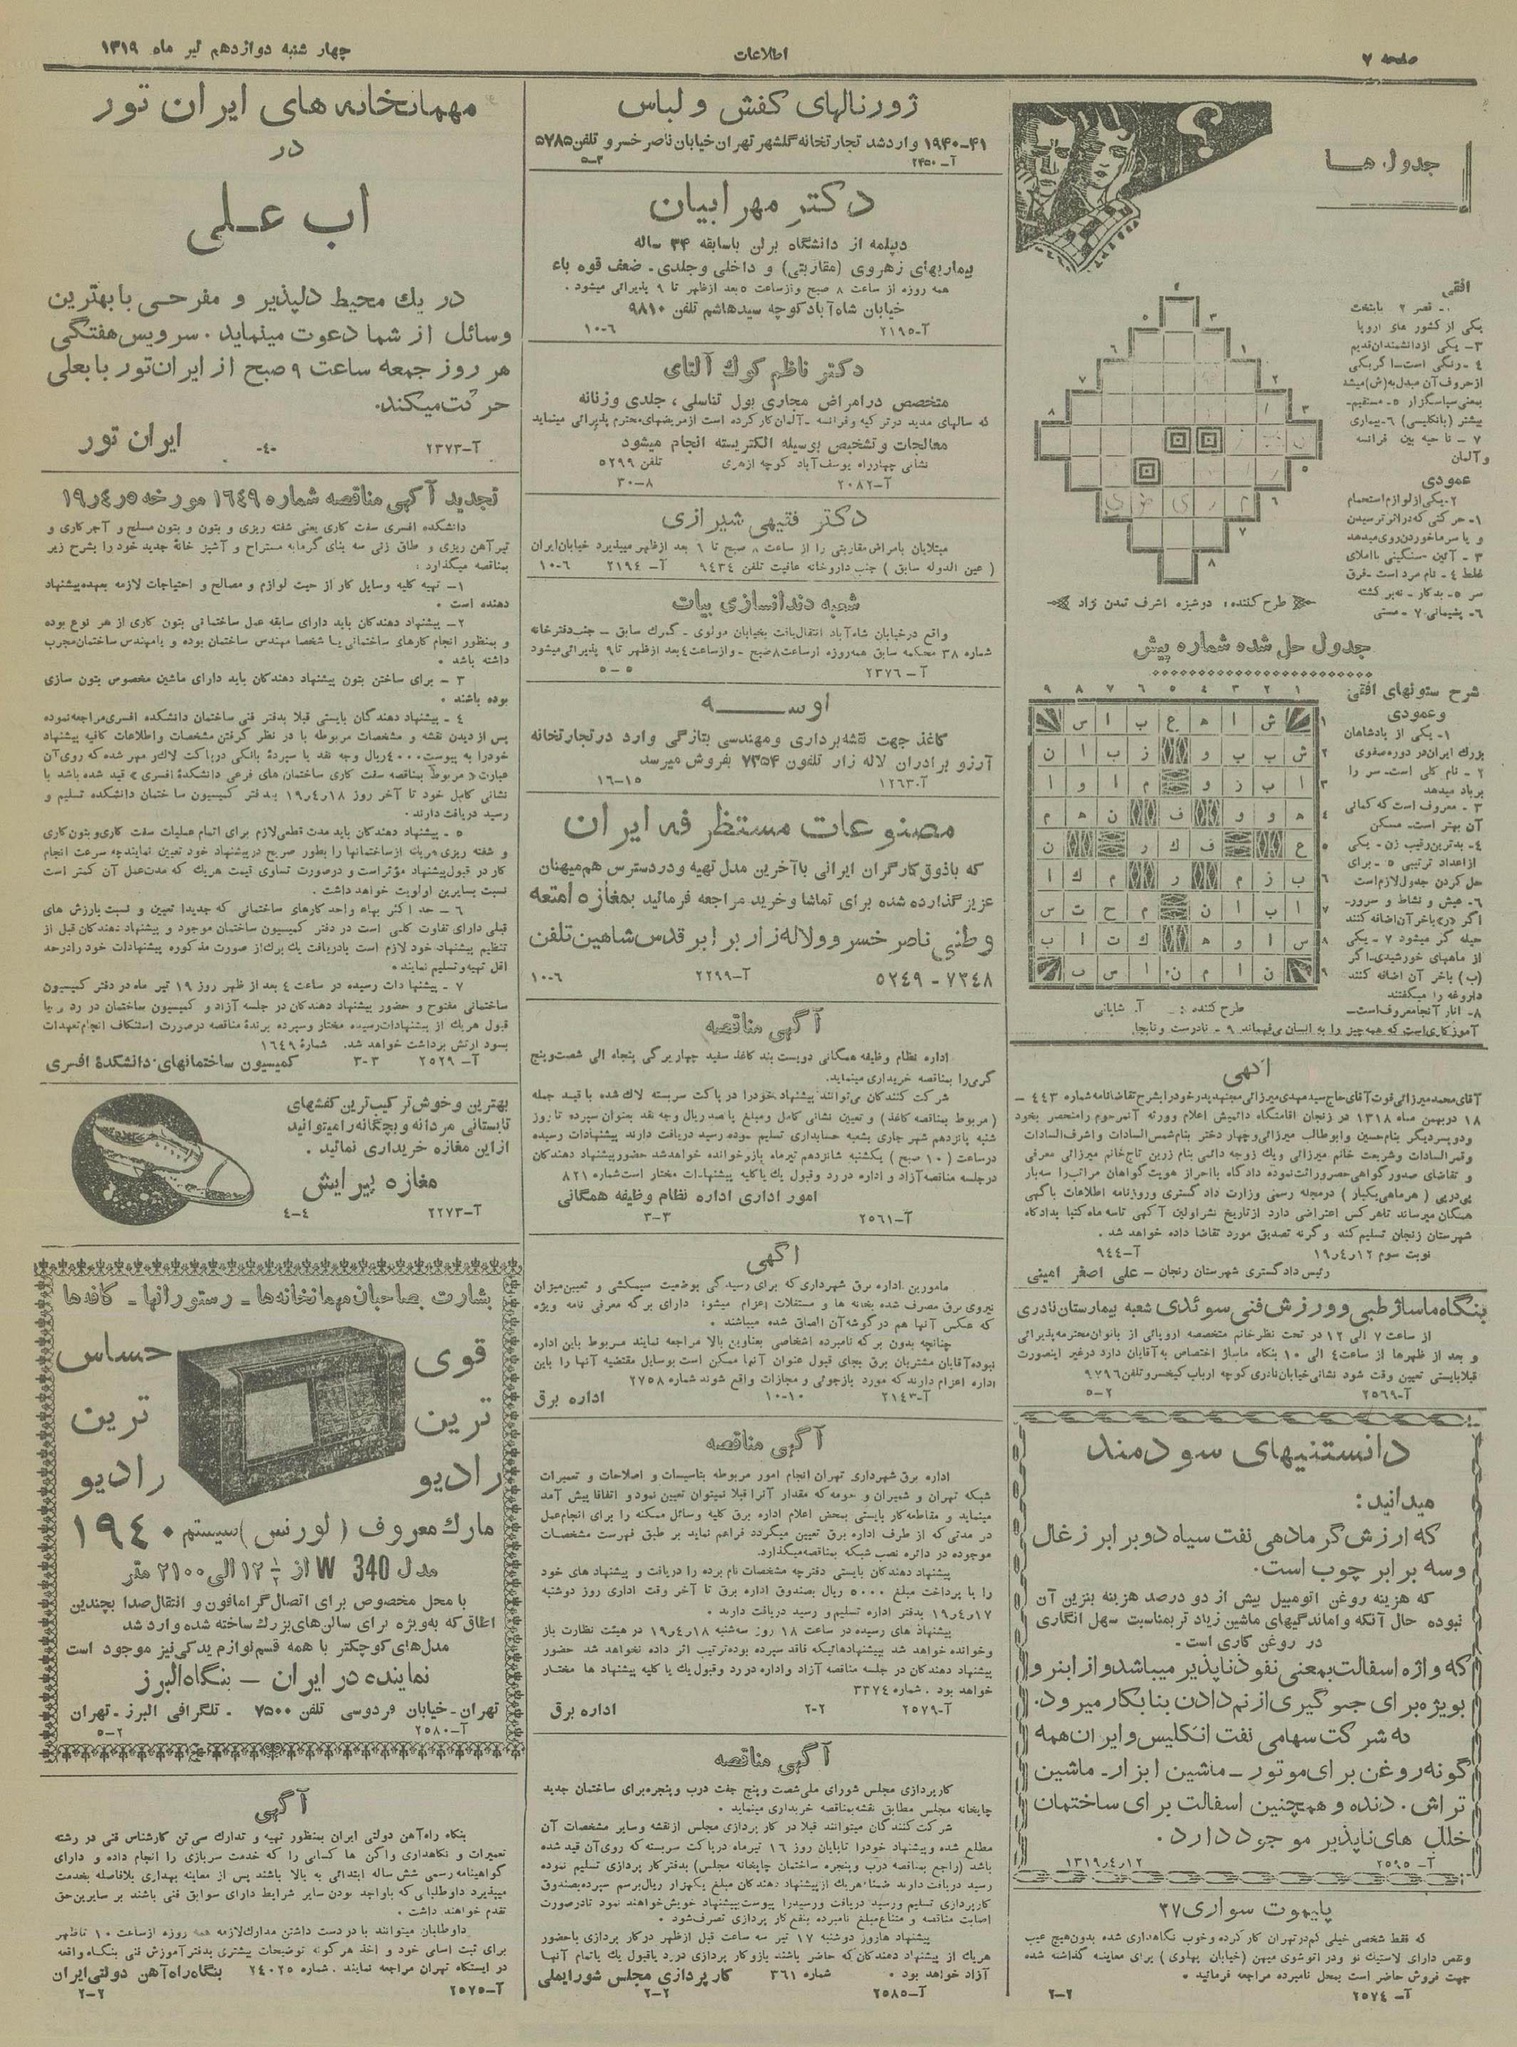 صفحه ۷
اطلاعات
چهار شنبه دوازدهم تیر ماه ۱۳۱۹
جدول ها
افقی
۱- قصر ۲ پایتخت
یکی از کشور های اروپا
۳- یکی ازدانشمندان قدیم
۴- رنگی است-اگر یکی
از حروف آن مبدل به(ش)میشد
بمعنی سپاسگزار ۵- مستقیم-
بیشتر (بانکلیسی) ۶-بیماری
۷- ناحیه بین فرانسه
و آلمان
عمودی
۲-یکی از لوازم استحمام
۱- حرکتی که دراثر ترسیدن
و یا سرما خوردن روی میدهد
۳- آئین -سنگینی با املای
غلط ۴- نام مرد است -فرق
سر ۵- بدکار- نه بر کشته
۶- پشیمانی ۷- مستی
طرح کننده: دوشیزه اشرف تمدن نژاد
جدول حل شده شماره پیش
شرح ستونهای افقی
و عمودی
۱- یکی از پادشاهان
بزرك ایران در دوره صفوی
۲- نام کلی است- سر را
بر باد میدهد
۳- معروف است که کمانی
آن بهتر است- مسکن
۴- بدترین رقیب زن- یکی
از اعداد ترتیبی ۵- برای
حل کردن جدول لازم است
۶- عیش و نشاط و سرور-
اگر «ر» باخر آن اضافه کنند
حیله گر میشود ۷- یکی
از ماههای خورشیدی-اگر
(ب) باخر آن اضافه کنند
داروغه را میگفتند
۸- انار آنجا معروف است-
آموزگاری است که همه چیز را به انسان می فهماند ۹- نادرست و نابجا
طرح کننده: آ. شایانی
آگهی
آقای محمد میرزائی فوت آقای حاج سید مهدی میرزائی مجتهد پدر خود را بشرح تقاضا نامه شماره ۴۴۳-
۱۸ دوبهمن ماه ۱۳۱۸ در زنجان اقامتگاه دائمیش اعلام وورثه آنمرحوم را منحصر بخود
و دو پسر دیگر بنام حسین و ابوطالب میرزائی و چهار دختر بنام شمس السادات و اشرف السادات
و قمر السادات و شریعت خانم میرزائی و یك زوجه دائمی بنام زرین تاج خانم میرزائی معرفی
و تقاضای صدور گواهی حصر وراثت نموده دادگاه با احراز هویت گواهان مراتب را سه بار
پی در پی (هر ماهی یکبار) در مجله رسمی وزارت داد گستری و روزنامه اطلاعات با گهی
همگان میرساند تا هر کس اعتراضی دارد از تاریخ نشر اولین آگهی تا سه ماه کتبا بدادگاه
شهرستان زنجان تسلیم کند و گرنه تصدیق مورد تقاضا داده خواهد شد.
نوبت سوم ۱۲ر۴ر۱۹ آ-۹۴۴
رئیس داد گستری شهرستان زنجان - علی اصغر امینی
بنگاه ماساژ طبی و ورزش فنی سوئدی شعبه بیمارستان نادری
از ساعت ۷ الی ۱۲ در تحت نظر خانم متخصصه اروپائی از بانوان محترمه پذیرائی
و بعد از ظهرها از ساعت ۴ الی ۱۰ بنگاه ماساژ اختصاص به آقایان دارد در غیر اینصورت
قبلا بایستی تعیین وقت شود نشانی خیابان نادری کوچه ارباب کیخسرو تلفن ۹۷۹۶
آ-۲۵۶۹ ۲-۵
دانستنیهای سودمند
میدانید:
که ارزش گرمادهی نفت سیاه دو برابر زغال
وسه برابر چوب است.
که هزینه روغن اتومبیل بیش از دو درصد هزینه بنزین آن
نبوده حال آنکه واماندگیهای ماشین زیاد تر بمناسبت سهل انگاری
در روغن کاری است.
که واژه اسفالت بمعنی نفوذ ناپذیر میباشد و از اینر و
بویژه برای جلو گیری از نم دادن بنا بکار میرود.
که شرکت سهامی نفت انگلیس و ایران همه
گونه روغن برای موتور - ماشین ابزار- ماشین
تراش. دنده و همچنین اسفالت برای ساختمان
خلل های ناپذیر موجود دارد.
آ- ۲۵۹۵ ۱۲ر۴ر۱۳۱۹
پلیموت سواری ۳۷
که فقط شخصی خیلی کم در تهران کار کرده و خوب نگاهداری شده بدون هیچ عیب
و نقص دارای لاستیك نو و در اتو شوی میهن (خیابان پهلوی) برای معاینه گذاشته شده
جهت فروش حاضر است بمحل نامبرده مراجعه فرمائید.
آ- ۲۵۷۴ ۲-۲
ژورنالهای کفش و لباس
۴۱-۱۹۴۰ وارد شد تجارتخانه گلشهر تهران خیابان ناصر خسرو تلفن ۵۷۸۵
آ- ۲۴۵۰ ۳-۵
دکتر مهرابیان
دیپلمه از دانشگاه برلن باسابقه ۳۴ ساله
بیماریهای زهروی (مقاربتی) و داخلی و جلدی- ضعف قوه باء
همه روزه از ساعت ۸ صبح و از ساعت ۵ بعد از ظهر تا ۹ پذیرائی میشود.
خیابان شاه آباد کوچه سید هاشم تلفن ۹۸۱۰
آ-۲۱۹۵ ۶-۱۰
دکتر ناظم کوك آلتای
متخصص در امراض مجاری بول تناسلی، جلدی و زنانه
که سالهای مدید در ترکیه و فرانسه - آلمان کار کرده است از مریضهای محترم پذیرائی مینماید
معالجات و تشخیص بوسیله الکتریسته انجام میشود
نشانی چهار راه یوسف آباد کوچه ازهری تلفن ۵۲۹۹
آ-۲۰۸۲ ۸-۳۰
دکتر فقیهی شیرازی
مبتلایان بامراض مقاربتی را از ساعت ۸ صبح تا ۶ بعد از ظهر میپذیرد خیابان ایران
(عین الدوله سابق) جنب داروخانه عافیت تلفن ۹۴۳۴ آ- ۲۱۹۴ ۶-۱۰
شعبه دندانسازی بیات
واقع در خیابان شاه آباد انتقال یافت بخیابان مولوی - گمرك سابق - جنب دفتر خانه
شماره ۳۸ محکمه سابق همه روزه از ساعت ۸ صبح - و از ساعت ۴ بعد از ظهر تا ۹ پذیرائی میشود
آ-۲۳۷۶ ۵-۵
اوســـــه
کاغذ جهت نقشه برداری و مهندسی بتازگی وارد در تجارتخانه
آرزو برادران لاله زار تلفون ۷۳۵۴ بفروش میرسد
آ-۱۲۶۳ ۱۵-۱۶
مصنوعات مستظرفه ایران
که باذوق کارگران ایرانی با آخرین مدل تهیه و در دسترس هم میهنان
عزیز گذارده شده برای تماشا و خرید مراجعه فرمائید بمغازه امتعه
وطنی ناصر خسرو و لاله زار برابر قدس شاهین تلفن
۷۳۴۸ - ۵۲۴۹ آ-۲۲۹۹ ۶-۱۰
آگهی مناقصه
اداره نظام وظیفه همگانی دویست بند کاغذ سفید چهار برگی پنجاه الی شصت و پنج
گرمی را بمناقصه خریداری مینماید.
شرکت کنندگان می توانند پیشنهاد خود را در پاکت سربسته لاك شده با قید جمله
(مربوط بمناقصه کاغذ) و تعیین نشانی کامل و مبلغ پانصد ریال وجه نقد بعنوان سپرده تا روز
شنبه پانزدهم شهر جاری بشعبه حسابداری تسلیم نموده رسید دریافت دارند پیشنهادات رسیده
در ساعت (۱۰ صبح) یکشنبه شانزدهم تیرماه باز و خوانده خواهد شد حضور پیشنهاد دهندگان
در جلسه مناقصه آزاد و اداره در رد و قبول یك یا کلیه پیشنهادات مختار است شماره ۸۲۱
امور اداری اداره نظام وظیفه همگانی
آ-۲۵۶۱ ۳-۳
اگهی
مامورین اداره برق شهرداری که برای رسیدگی بوضعیت سیمکشی و تعیین میزان
نیروی برق مصرف شده بخانه ها و مستغلات اعزام میشوند دارای برگه معرفی نامه ویژه
که عکس آنها هم در گوشه آن الصاق شده میباشند.
چنانچه بدون برگه نامبرده اشخاصی بعناوین بالا مراجعه نمایند مربوط باین اداره
نبوده آقایان مشتریان برق بجای قبول عنوان آنها ممکن است بوسایل مقتضیه آنها را باین
اداره اعزام دارند که مورد بازجوئی و مجازات واقع شوند شماره ۲۷۵۸
آ-۲۱۴۳ ۱۰-۱۰ اداره برق
آگهی مناقصه
اداره برق شهرداری تهران انجام امور مربوطه بتاسیسات و اصلاحات و تعمیرات
شبکه تهران و شمیران و حومه که مقدار آنرا قبلا نمیتوان تعیین نمود و اتفاقا پیش آمد
مینماید و مقاطعه کار بایستی بمحض اعلام اداره برق کلیه وسائل ممکنه را برای انجام عمل
در مدتی که از طرف اداره برق تعیین میگردد فراهم نماید بر طبق فهرست مشخصات
موجوده در دائره نصب شبکه بمناقصه میگذارد.
پیشنهاد دهندگان بایستی دفترچه مشخصات نام برده را دریافت و پیشنهاد های خود
را با پرداخت مبلغ ۵۰۰۰ ریال بصندوق اداره برق تا آخر وقت اداری روز دوشنبه
۱۷ر۴ر۱۹ بدفتر اداره تسلیم و رسید دریافت دارند.
پیشنهاد های رسیده در ساعت ۱۸ روز سه شنبه ۱۸ر۴ر۱۹ در هیئت نظارت باز
و خوانده خواهد شد پیشنهادهائیکه فاقد سپرده بوده ترتیب اثر داده نخواهد شد حضور
پیشنهاد دهندگان در جلسه مناقصه آزاد و اداره در رد و قبول یك یا کلیه پیشنهاد ها مختار
خواهد بود. شماره ۳۳۷۴
آ-۲۵۷۹ ۲-۲ اداره برق
آگهی مناقصه
کارپردازی مجلس شورای ملی شصت و پنج جفت درب و پنجره برای ساختمان جدید
چاپخانه مجلس مطابق نقشه بمناقصه خریداری مینماید.
شرکت کنندگان میتوانند قبلا در کار پردازی مجلس از نقشه و سایر مشخصات آن
مطلع شده و پیشنهاد خود را تا پایان روز ۱۶ تیرماه در پاکت سربسته که روی آن قید شده
باشد (راجع بمناقصه درب و پنجره ساختمان چاپخانه مجلس) بدفتر کار پردازی تسلیم نموده
رسید دریافت دارند ضمنا هر یك از پیشنهاد دهندگان مبلغ یکهزار ریال برسم سپرده بصندوق
کارپردازی تسلیم و رسید دریافت و رسید را پیوست پیشنهاد خویش خواهند نمود تا در صورت
اصابت مناقصه و امتناع مبلغ نامبرده بنفع کار پردازی تصرف شود.
پیشنهاد ها روز دوشنبه ۱۷ تیر سه ساعت قبل از ظهر در کار پردازی با حضور
هر یك از پیشنهاد دهندگان که حاضر باشند باز و کار پردازی در رد یا قبول یك یا تمام آنها
آزاد خواهد بود. شماره ۳۶۱ کار پردازی مجلس شورایملی
آ-۲۵۸۵ ۲-۲
مهمانخانه های ایران تور
در
اب عــلی
در یك محیط دلپذیر و مفرحی با بهترین
وسائل از شما دعوت مینماید. سرویس هفتگی
هر روز جمعه ساعت ۹ صبح از ایران تور بابعلی
حرکت میکند.
آ-۲۳۷۳ ۴۰- ایران تور
تجدید آگهی مناقصه شماره ۱۶۴۹ مورخه ۵ر۴ر۱۹
دانشکده افسری سفت کاری یعنی شفته ریزی و بتون و بتون مسلح و آجر کاری و
تیر آهن ریزی و طاق زنی سه بنای گرمابه مستراح و آشپز خانۀ جدید خود را بشرح زیر
بمناقصه میگذارد:
۱- تهیه کلیه وسایل کار از حیث لوازم و مصالح و احتیاجات لازمه بعهده پیشنهاد
دهنده است.
۲- پیشنهاد دهندگان باید دارای سابقه عمل ساختمانی بتون کاری از هر نوع بوده
و بمنظور انجام کارهای ساختمانی یا شخصا مهندس ساختمان بوده و یا مهندس ساختمان مجرب
داشته باشد.
۳- برای ساختن بتون پیشنهاد دهندگان باید دارای ماشین مخصوص بتون سازی
بوده باشند.
۴- پیشنهاد دهندگان بایستی قبلا بدفتر فنی ساختمان دانشکده افسری مراجعه نموده
پس از دیدن نقشه و مشخصات مربوطه با در نظر گرفتن مشخصات و اطلاعات کافیه پیشنهاد
خود را به پیوست ۴۰۰۰ ریال وجه نقد یا سپردۀ بانکی در پاکت لاك و مهر شده که روی آن
عبارت «مربوط بمناقصه سفت کاری ساختمان های فرعی دانشکدۀ افسری» قید شده باشد با
نشانی کامل خود تا آخر روز ۱۸ر۴ر۱۹ بدفتر کمیسیون ساختمان دانشکده تسلیم و
رسید دریافت دارند.
۵- پیشنهاد دهندگان باید مدت قطعی لازم برای اتمام عملیات سفت کاری و بتون کاری
و شفته ریزی هر یك از ساختمانها را بطور صریح در پیشنهاد خود تعیین نمایند چه سرعت انجام
کار در قبول پیشنهاد مؤثر است و در صورت تساوی قیمت هر یك که مدت عمل آن کمتر است
نسبت بسایرین اولویت خواهد داشت.
۶- حد اکثر بهاء واحد کارهای ساختمانی که جدیدا تعیین و نسبت بارزش های
قبلی دارای تفاوت کلی است در دفتر کمیسیون ساختمان موجود و پیشنهاد دهندگان قبل از
تنظیم پیشنهاد خود لازم است با دریافت یك برك از صورت مذکوره پیشنهادات خود را در حد
اقل تهیه و تسلیم نمایند.
۷- پیشنهادات رسیده در ساعت ۴ بعد از ظهر روز ۱۹ تیر ماه در دفتر کمیسیون
ساختمانی مفتوح و حضور پیشنهاد دهندگان در جلسه آزاد و کمیسیون ساختمان در رد و یا
قبول هر یك از پیشنهادات رسیده مختار و سپرده برندۀ مناقصه در صورت استنکاف انجام تعهدات
بسود ارتش برداشت خواهد شد. شمارۀ ۱۶۴۹
آ- ۲۵۲۹ ۳-۳ کمیسیون ساختمانهای دانشکدۀ افسری
بهترین و خوش ترکیب ترین کفشهای
تابستانی مردانه و بچگانه را میتوانید
از این مغازه خریداری نمائید.
مغازه پیرایش
آ-۲۲۷۳ ۴-۴
بشارت بصاحبان مهمانخانه ها - رستورانها - کافه ها
قوی
ترین
رادیو
حساس
ترین
رادیو
مارك معروف (لورنس) سیستم ۱۹۴۰
مدل W 340 از ۱۲ ۱/۲ الی ۲۱۰۰ متر
با محل مخصوص برای اتصال گرامافون و انتقال صدا بچندین
اطاق که به ویژه برای سالن های بزرك ساخته شده وارد شد
مدل های کوچکتر با همه قسم لوازم یدکی نیز موجود است
نماینده در ایران - بنگاه البرز
تهران- خیابان فردوسی تلفن ۷۵۰۰ - تلگرافی البرز- تهران
آ-۲۵۸۰ ۲-۵
آگهی
بنگاه راه آهن دولتی ایران بمنظور تهیه و تدارك سی تن کارشناس فنی در رشته
تعمیرات و نگاهداری واگن ها کسانی را که خدمت سربازی را انجام داده و دارای
گواهینامه رسمی شش ساله ابتدائی به بالا باشند پس از معاینه بهداری بلافاصله بخدمت
میپذیرد داوطلبانی که با واجد بودن سایر شرایط دارای سوابق فنی باشند بر سایرین حق
تقدم خواهند داشت.
داوطلبان میتوانند با در دست داشتن مدارك لازمه همه روزه از ساعت ۱۰ تا ظهر
برای ثبت اسامی خود و اخذ هر گونه توضیحات بیشتری بدفتر آموزش فنی بنگاه واقعه
در ایستگاه تهران مراجعه نمایند. شماره ۲۴۰۲۵ بنگاه راه آهن دولتی ایران
آ-۲۵۷۵ ۲-۲